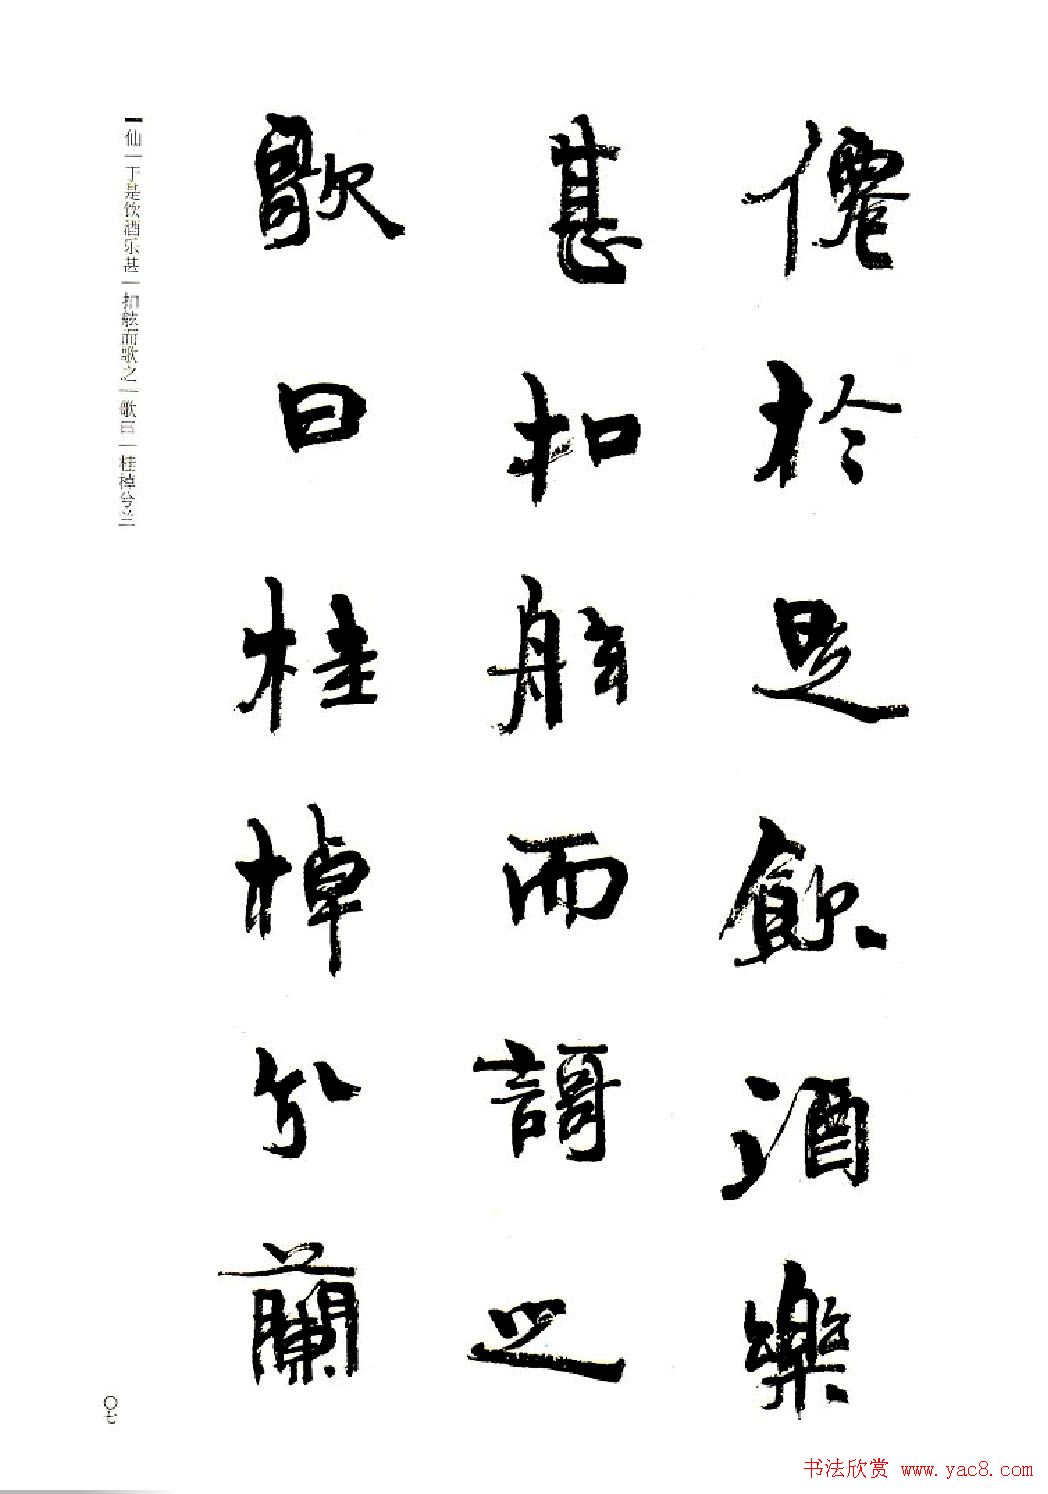 僊於是飲酒樂
甚扣舷而謌之
歌曰桂棹兮蘭
仙一于是饮酒乐甚一扣舷而歌之一歌曰一桂棹兮兰
〇七
书法欣赏 www.yac8.com